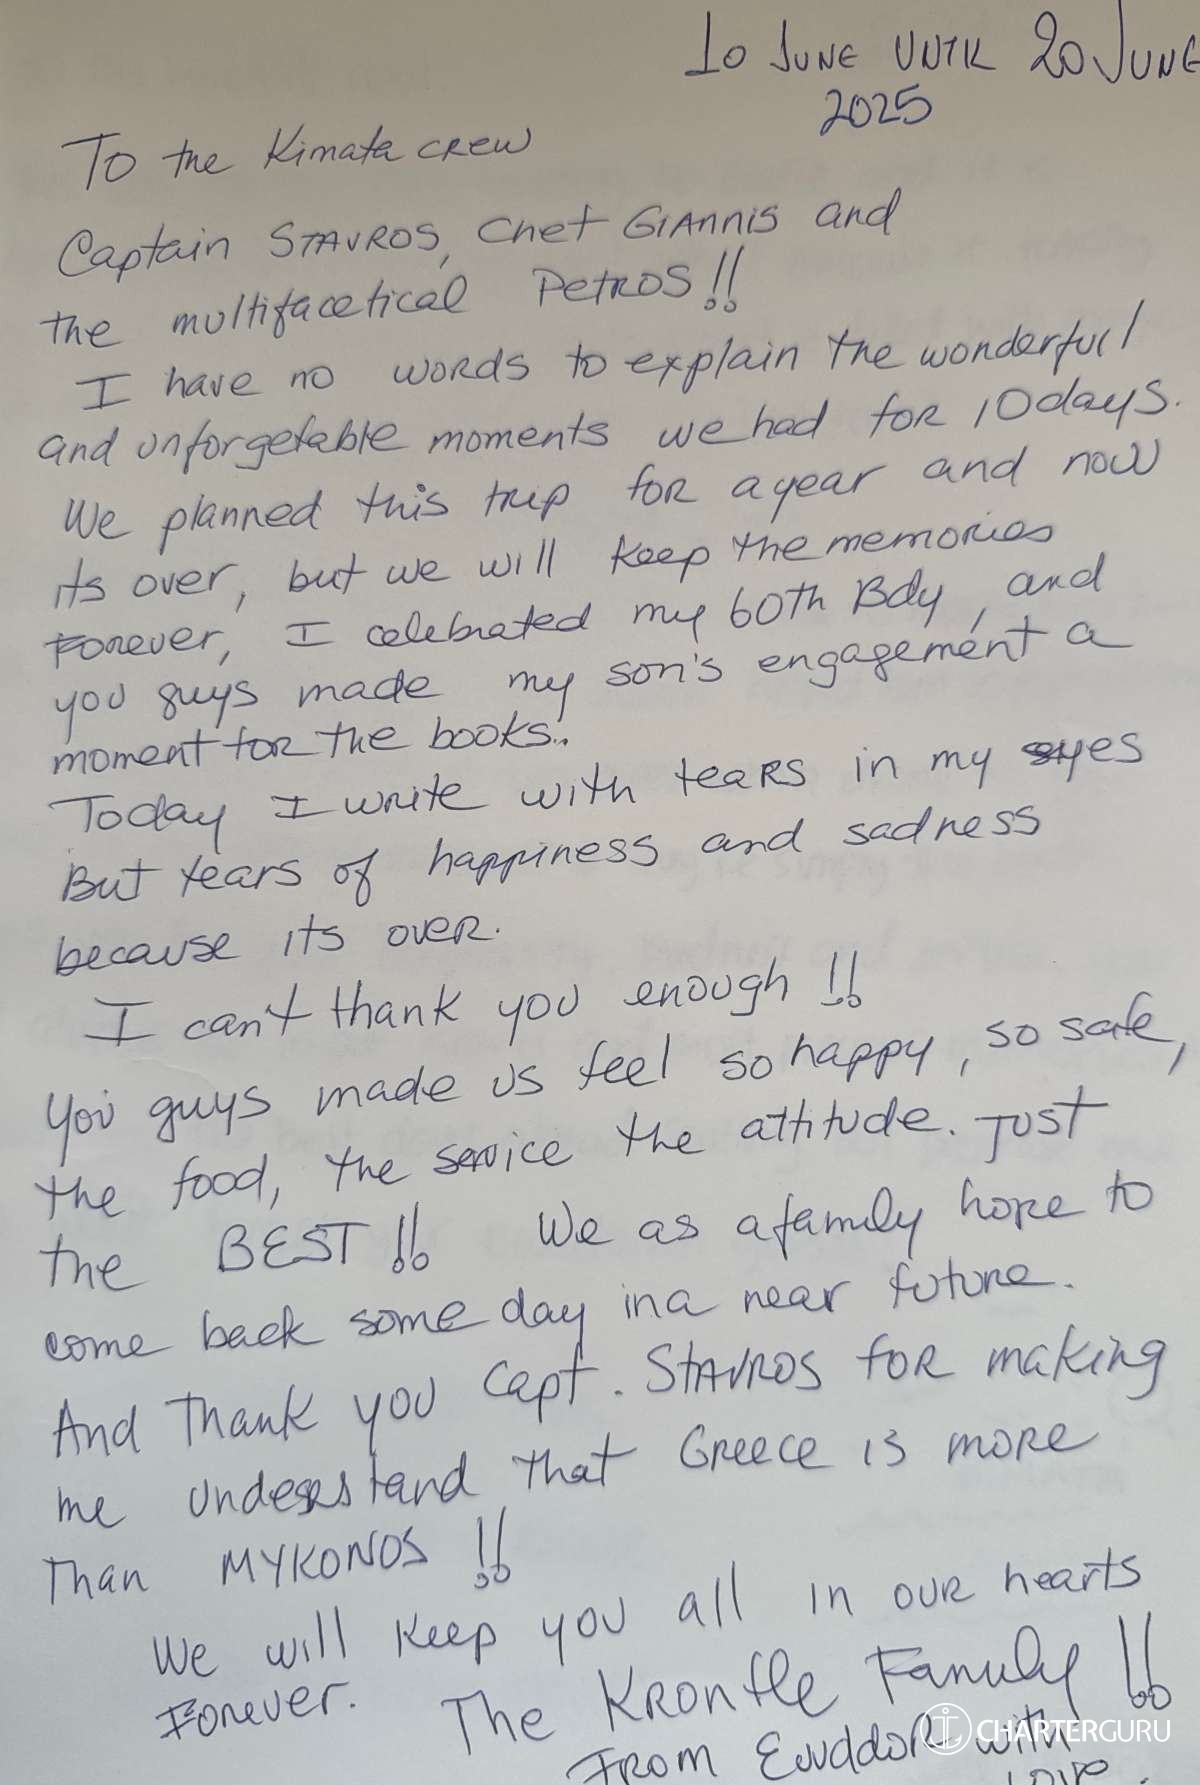 10 JUNE UNTIL 20 JUNE
2025
To the Kimata crew
Captain STAVROS, Chef GIANNIS and
the multifacetical PETROS!!
I have no words to explain the wonderful
and unforgetable moments we had for 10 days.
We planned this trip for a year and now
its over, but we will keep the memories
Forever, I celebrated my 60th Bdy, and
you guys made my son's engagement a
moment for the books..
Today I write with tears in my eyes
But tears of happiness and sadness
because its over.
I can't thank you enough!!
You guys made us feel so happy, so safe,
the food, the service the attitude. Just
the BEST!! We as a family hope to
come back some day in a near future.
And Thank you Capt. STAVROS for making
me understand that Greece is more
Than MYKONOS!!
We will keep you all in our hearts
Forever. The Kronfle Family!!
From with
Love.
CHARTERGURU